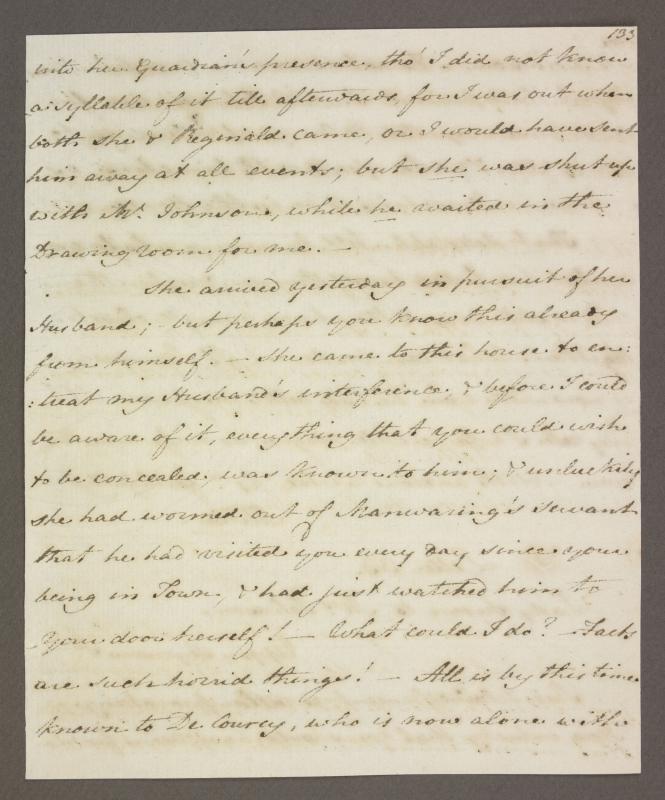 133
into her Guardian's presence, tho' I did not know
a syllable of it till afterwards, for I was out when
both she & Reginald came, or I would have sent
him away at all events; but she was shut up
with Mr. Johnson, while he waited in the
Drawing room for me. —
She arrived yesterday in pursuit of her
Husband; – but perhaps you know this already
from himself. — She came to this house to en:
:treat my Husband's interference, & before I could
be aware of it, everything that you could wish
to be concealed, was known to him; & unluckily
she had wormed out of Manwaring's servant
that he had visited you every day since your
being in Town, & had just watched him to
your door herself! — What could I do? – Facts
are such horrid things! — All is by this time
known to De Courcy, who is now alone with